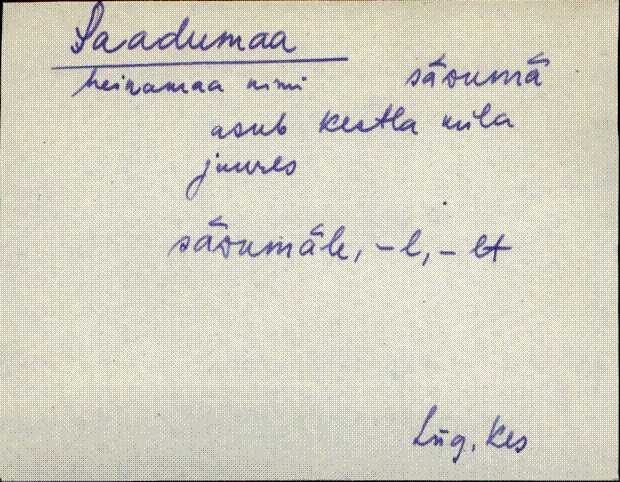 Saadumaa
heinamaa nimi sāᴅumā
asub Kestla küla
juures
sāᴅumāle, -l, -lt
Lüg, Kes